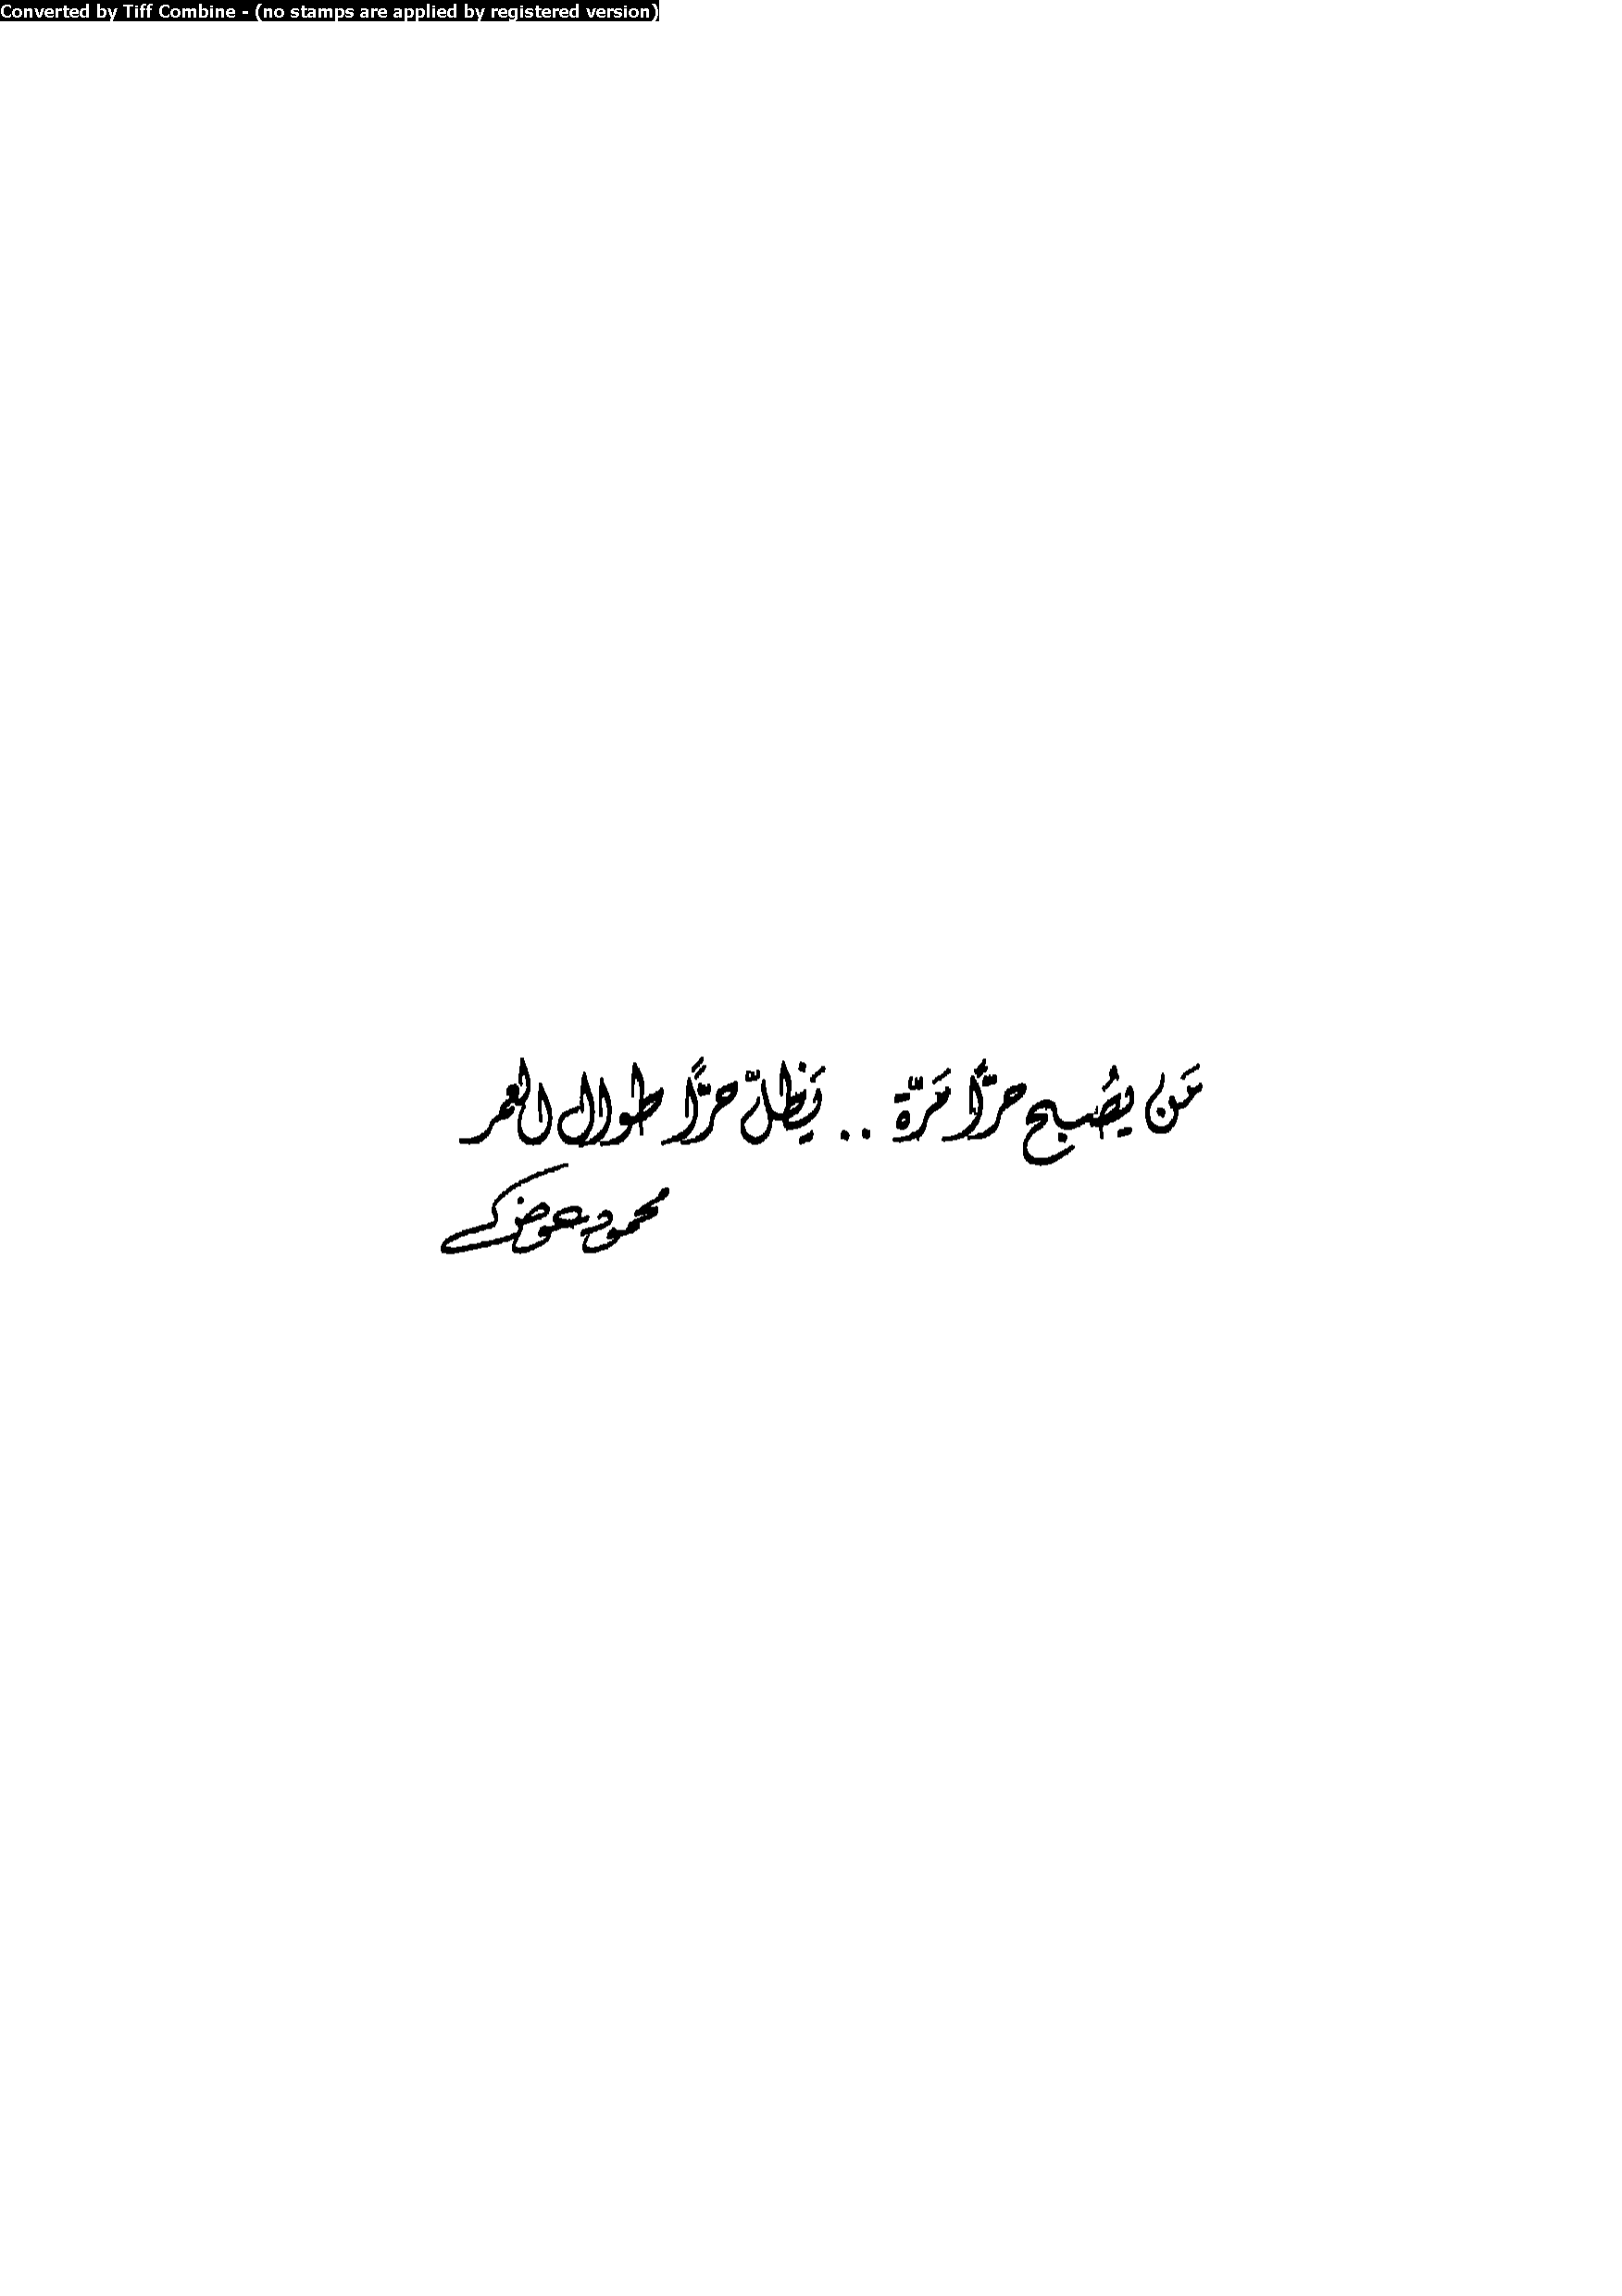 Converted by Tiff Combine - (no stamps are applied by registered version)
مَن يُصْبح حرًّا مَرّة .. يَظلّ حرًّا طوال العمر
محمود عوض